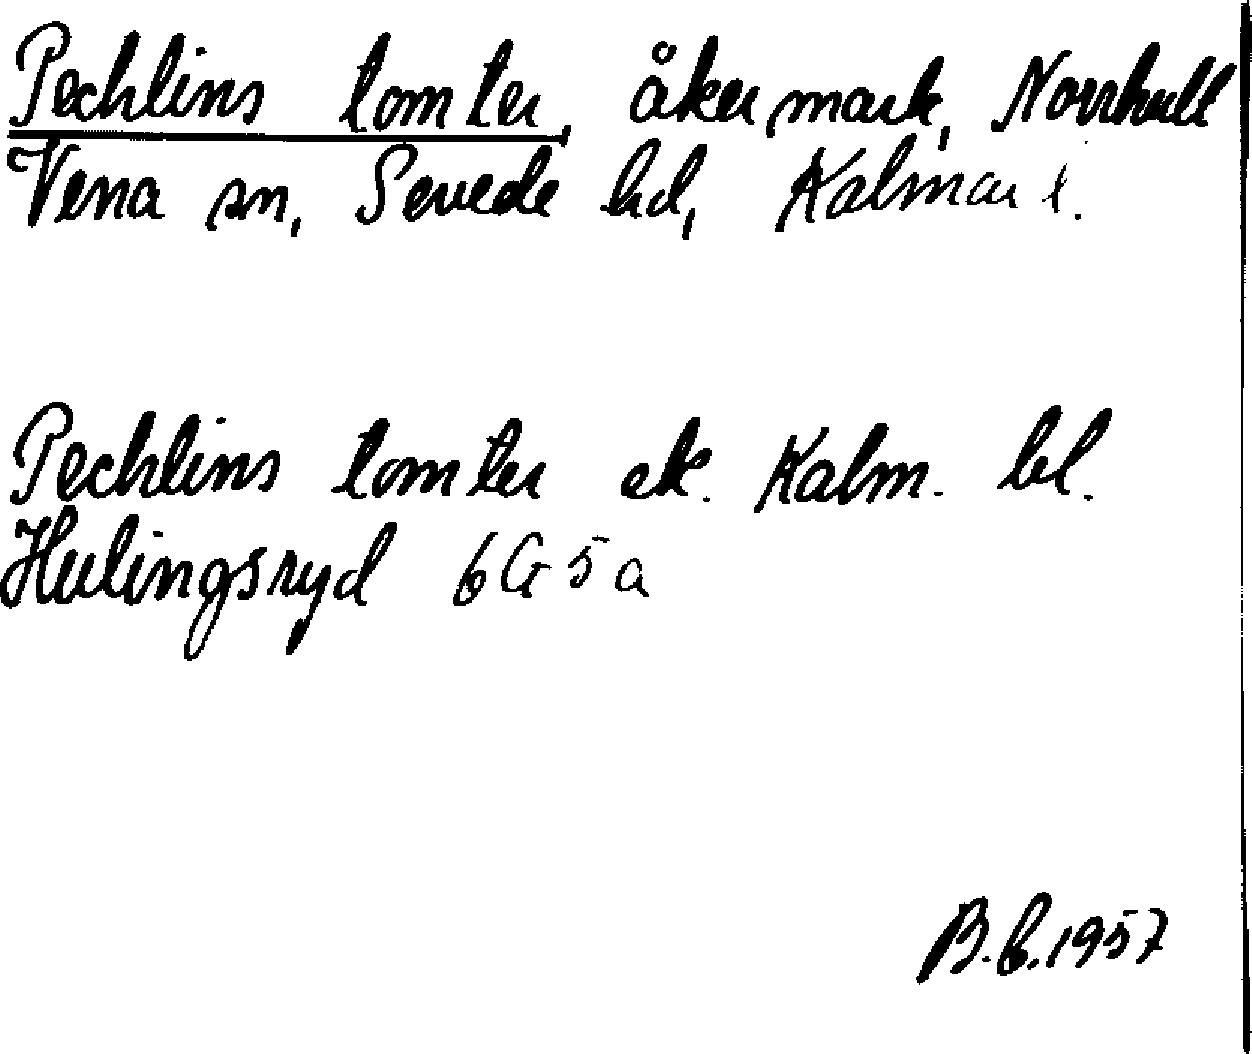 Pechlins tomter, åkermark, Norrhult
Vena sn, Sevede hd, Kalmar l.
Pechlins tomter ek. Kalm. bl.
Hulingsryd 6G5a
B.b.1957